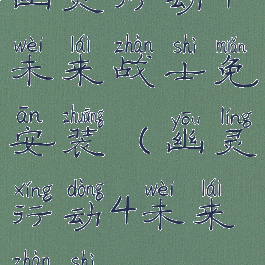 wèi lái zhàn shì miǎn
未来战士免
ān zhuāng yōu líng
安装(幽灵
xíng dòng wèi lái
行动4未来
zhàn shì